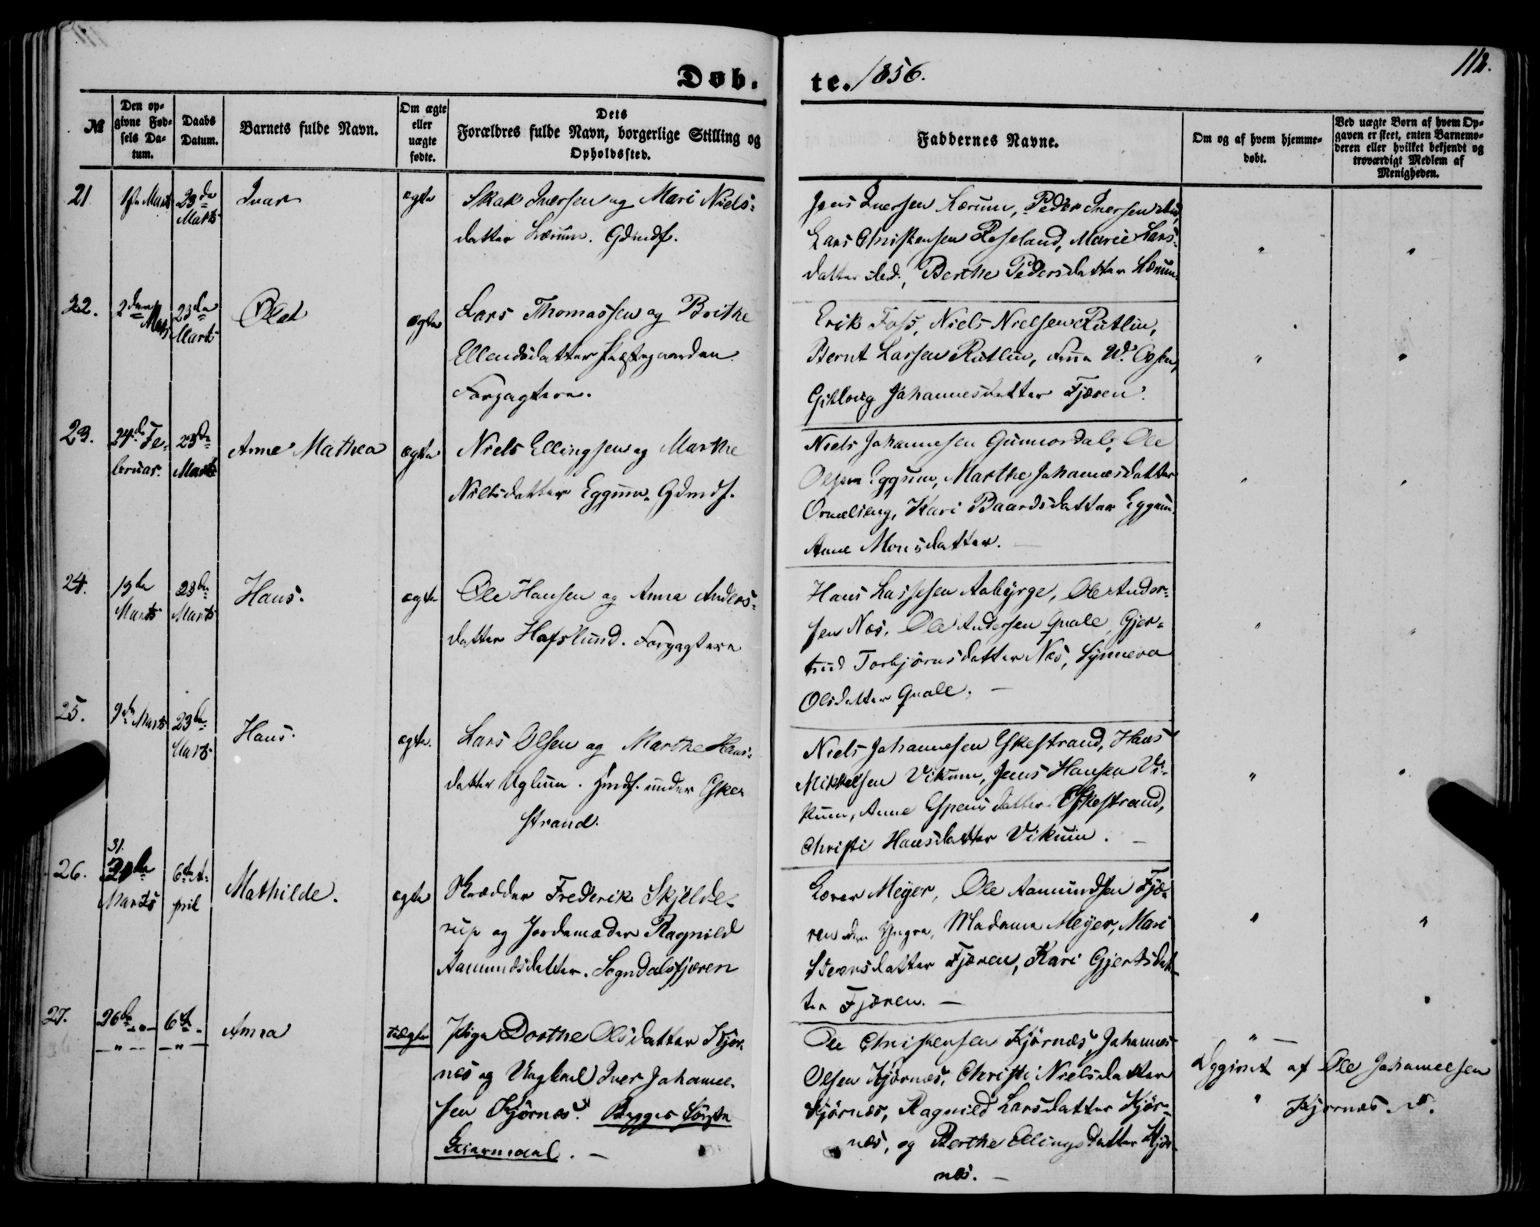 Døb. te. 1856. 112.
№
Den opgivne Fødsels Datum.
Daabs Datum.
Barnets fulde Navn.
Om ægte eller uægte fødte.
Dets Forældres fulde Navn, borgerlige Stilling og Opholdssted.
Faddernes Navne.
Om og af hvem hjemmedøbt.
Ved uægte Børn af hvem Opgaven er skeet, enten Barnemoderen eller hvilket bekjendt og troværdigt Medlem af Menigheden.
21 Marts 23de Marts Ivar ægte
Skak Iversen og Mari Niels-
datter Lærum. Gdmdf.
Jens Iversen Lærum, Peder Iversen
Lars Christensen Roseland, Marie Lars-
datter Berthe Pedersdatter Lærum
22. 2den Marts 23de Marts Oled ægte
Lars Thomassen og Brithe
Ellendsdatter Præstegaarden
Forpagtere.
Erik Foss, Niels Nielsen Rutlin,
Bernt Larsen Rutlin,
Johannesdatter Fjæren.
23. 24de Februar. 23de Marts Anne Mathea ægte
Niels Ellingsen og Marthe
Nielsdatter Eggum. Gdmdf.
Niels Johannesen Gunnordal, Ole
Olsen Eggum, Marthe Johannesdatter
Ormelieng, Kari Baardsdatter Eggum
Anne Monsdatter. —
24. 13de Marts 23de Marts Hans. ægte
Ole Hansen og Anna Anders-
datter Hafslund. Forpagtere
Hans Lassesen Aabyrge, Ole Ander-
sen Næs, Ole Andersen Quale, Gjer-
trud Torbjørnsdatter Næs, Synneva
Olsdatter Quale. —
25. 9de Marts 23de Marts Hans. ægte.
Lars Olsen og Marthe Hans-
datter Uglum. Hmdf. under Eske-
strand.
Niels Johannesen Eskestrand, Hans
Mikkelsen Vikum, Jens Hansen Vi-
kum, Anne Espensdatter Eskestrand,
Christi Hansdatter Vikum. —
26. 31. Marts 6te April Mathilde. ægte
Skrædder Frederik Skjelde-
rup og Jordemoder Ragnild
Aamundsdatter. Sogndalsfjæren
Meyer, Ole Aamundsen Fjæ-
ren den Yngre, Madame Meyer, Mari
Steensdatter Fjæren, Kari Gjertsdat-
ter Fjæren. —
27. 26de 6te Anna uægte
Pige Dorthe Olsdatter Kjør-
næs og Ungkarl Iver Johanne-
sen Kjørnæs. Begges første
Leiermaal. —
Ole Christensen Kjørnæs, Johannes
Olsen Kjørnæs, Christi Nielsdatter
Kjørnæs, Ragnild Larsdatter Kjør-
næs, og Berthe Ellingsdatter Kjør-
næs. —
Opgivet af Ole Johannesen
Kjørnæs.